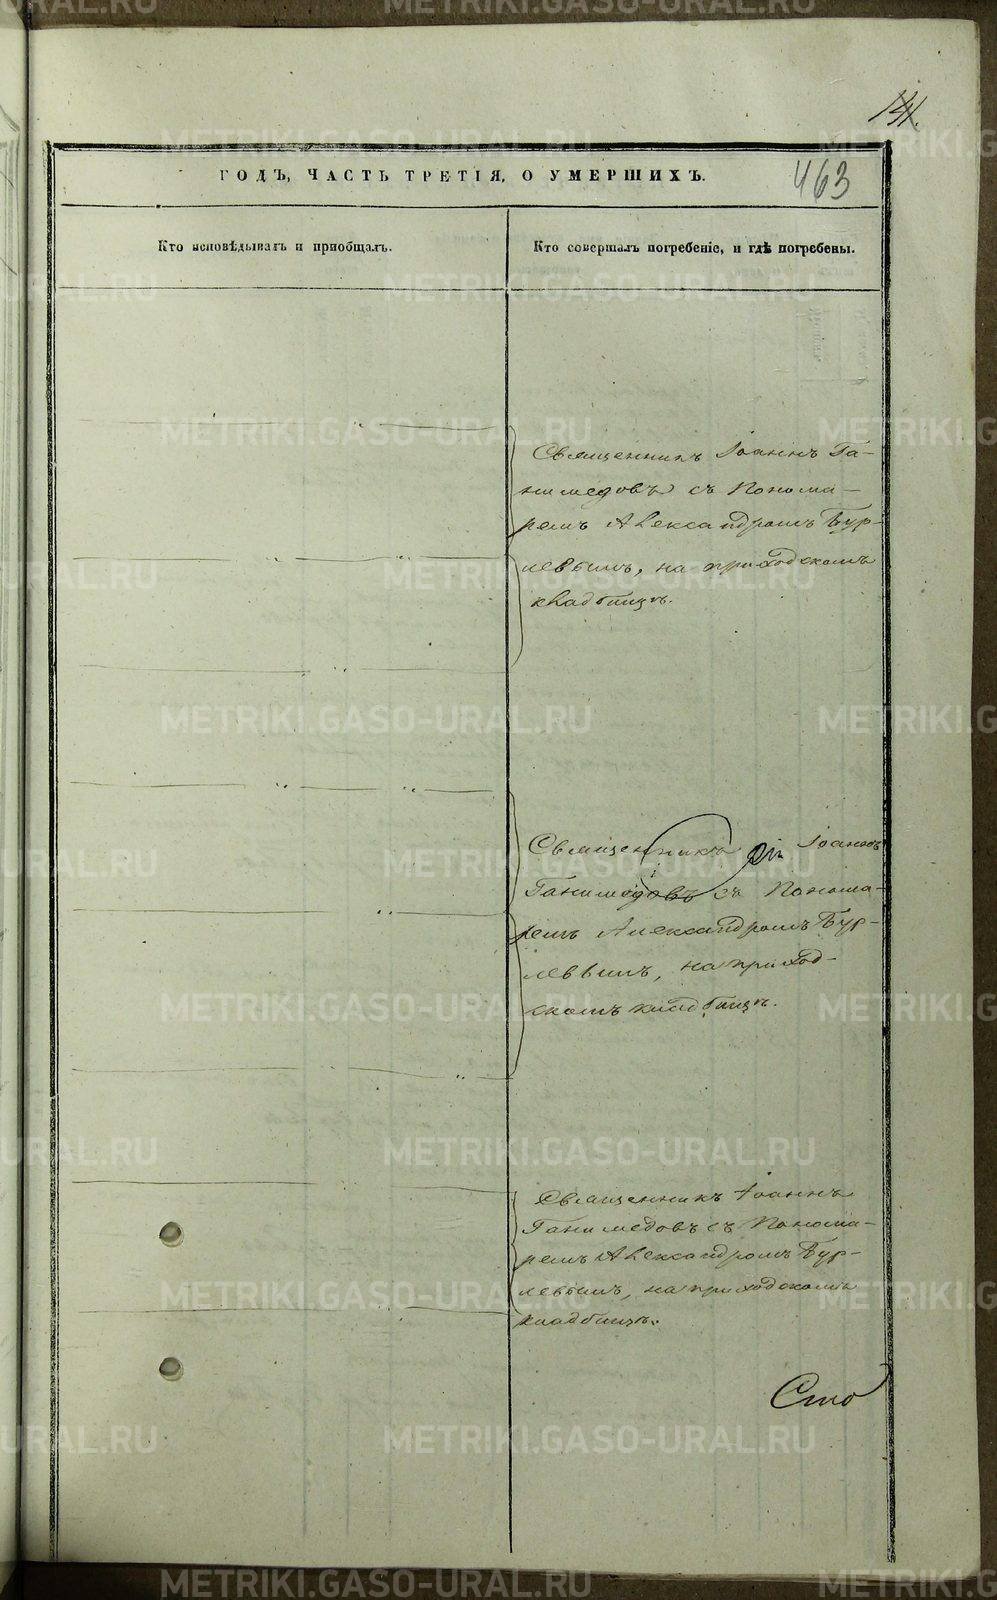 141.
463
ГОДЪ, ЧАСТЬ ТРЕТІЯ, О УМЕРШИХЪ.
Кто исповѣдывалъ и приобщалъ.
Кто совершалъ погребеніе, и гдѣ погребены.
Священникъ Іоаннъ Га-
нимедовъ съ Понома-
ремъ Александромъ Бур-
левымъ, на приходскомъ
кладбищѣ.
Священникъ Іоаннъ
Ганимедовъ съ Понома-
ремъ Александромъ Бур-
левымъ, на приход-
скомъ кладбищѣ.
Священникъ Іоаннъ
Ганимедовъ съ Понома-
ремъ Александромъ Бур-
левымъ, на приходскомъ
кладбищѣ.
Сто
METRIKI.GASO-URAL.RU